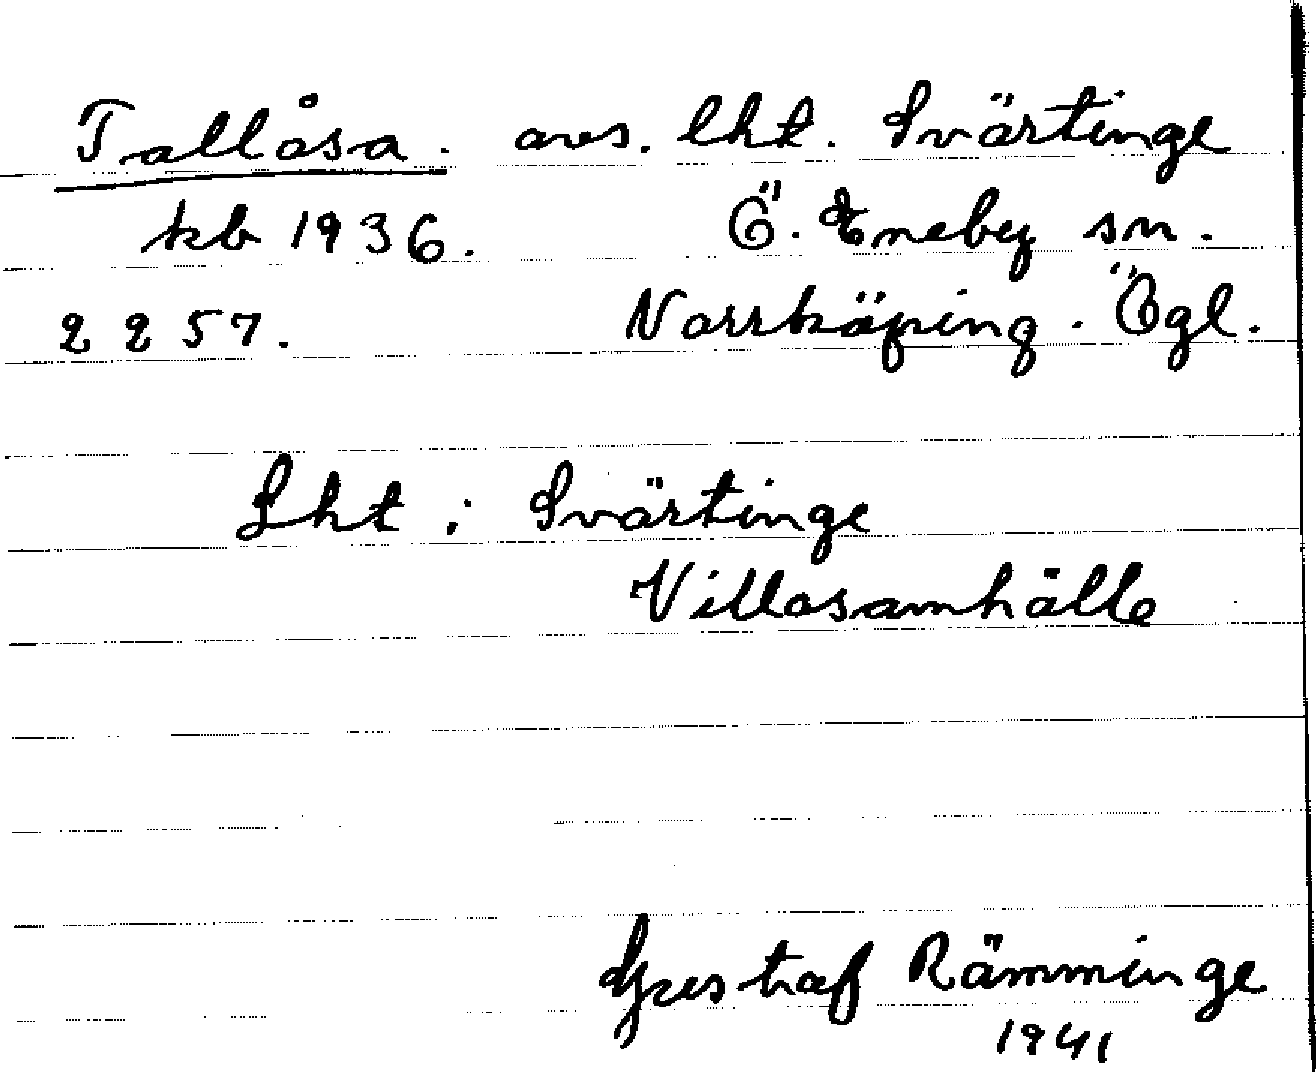 Tallåsa. avs. lht. Svärtinge
kb 1936. Ö. Eneby sn.
2257. Norrköping. Ögl.
Lht i Svärtinge
Villasamhälle
Gustaf Rämminge
1941